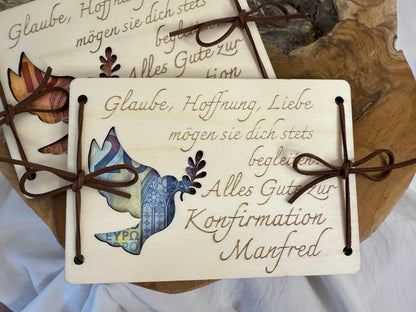 Glaube, Hoffnung, Liebe
mögen sie dich stets
begleiten.
Alles Gute zur
Konfirmation
Glaube, Hoffnung, Liebe
mögen sie dich stets
begleiten.
Alles Gute zur
Konfirmation
Manfred